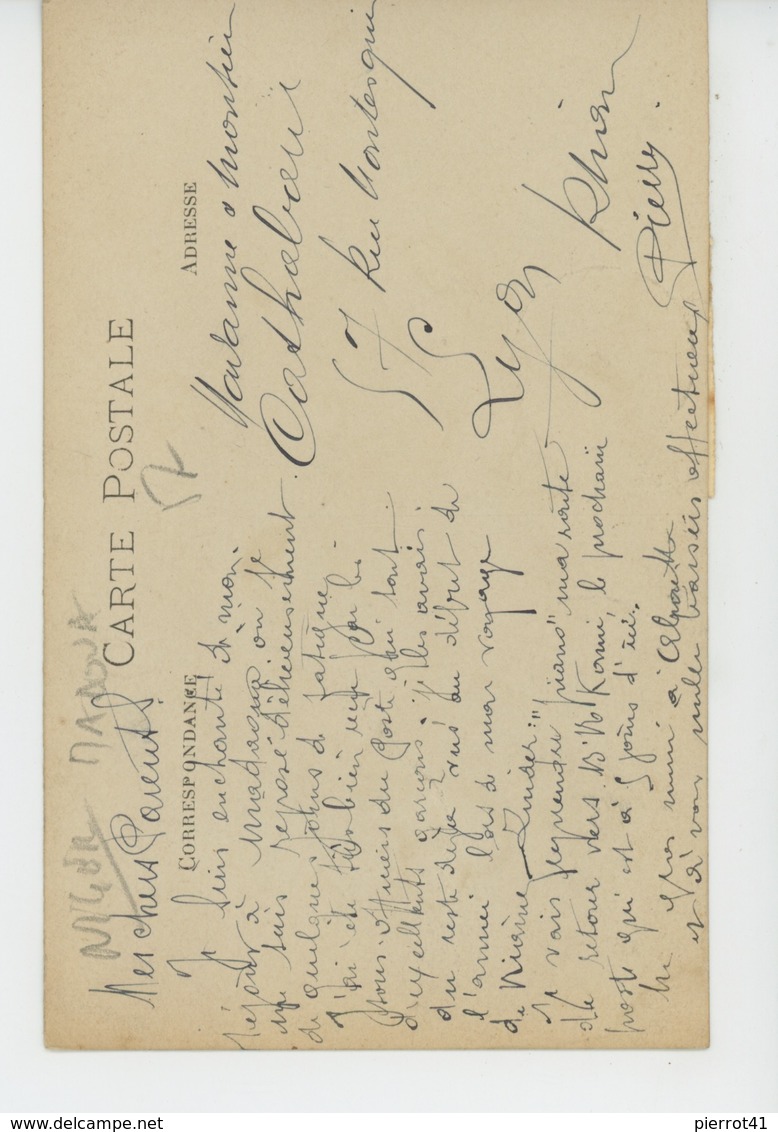 NIGER MADAOUA
CARTE POSTALE
57
CORRESPONDANCE
ADRESSE
Mes chers Parents
Je suis enchanté de mon
séjour à Madaoua où je
me suis reposé délicieusement
de quelques jours de fatigue.
J'ai été très bien reçu par les
sous-officiers du poste qui sont
d'excellents garçons. Je les avais
du reste déjà vus au début de
l'année lors de mon voyage
de Niamey Zinder.
Je vais reprendre "piano" ma route
de retour vers B'N Konni, le prochain
poste qui est à 5 jours d'ici.
et à vous mille baisers affectueux
Pierre
Madame & Monsieur
Cathabard
57 Rue Montesquieu
Lyon
Rhône
www.delcampe.net
pierrot41